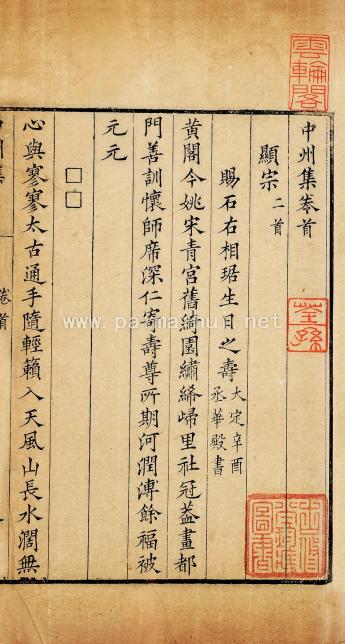 中州集卷首
顯宗二首
賜石右相琚生日之壽大定辛酉
承華殿書
黄閣今姚宋青宮舊綺園繡絺歸里社冠蓋畫都
門善訓懷師席深仁寄壽尊所期河潤溥餘福被
元元
□□
心與寥寥太古通手隨輕籟入天風山長水濶無
卷首
雲輪閣
荃孫
www.paimaishuit.net